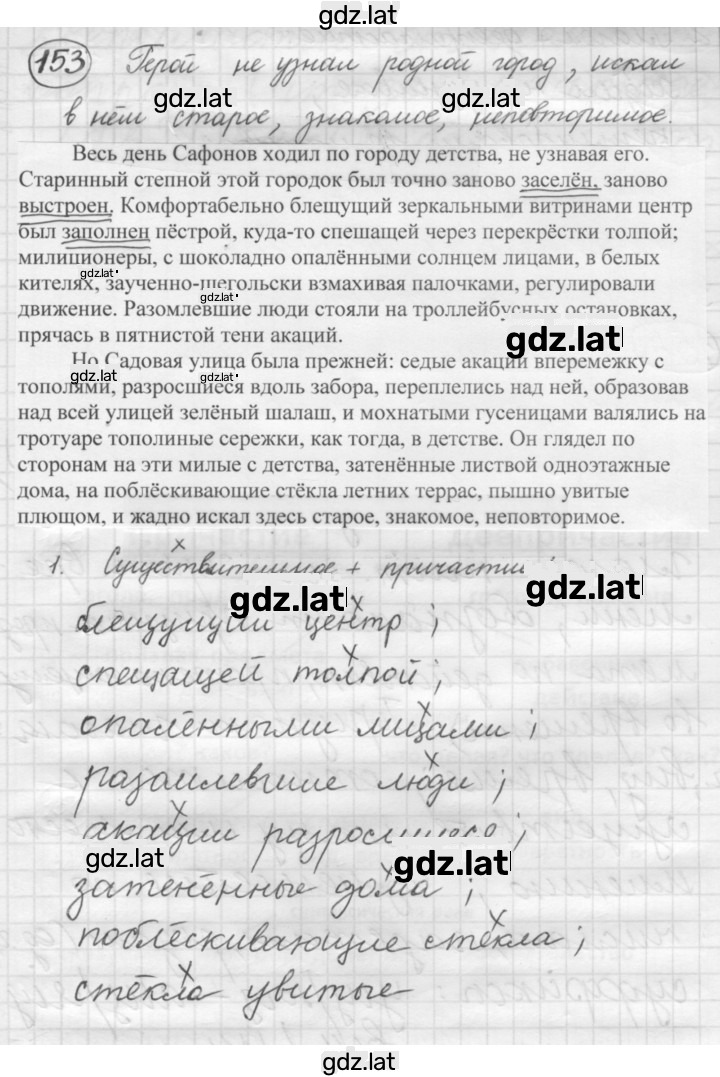 gdz.lat
153 Герой не узнал родной город, искал
gdz.lat gdz.lat
в нём старое, знакомое, неповторимое.
Весь день Сафонов ходил по городу детства, не узнавая его.
Старинный степной этой городок был точно заново заселён, заново
выстроен. Комфортабельно блещущий зеркальными витринами центр
был заполнен пёстрой, куда-то спешащей через перекрёстки толпой;
милиционеры, с шоколадно опалёнными солнцем лицами, в белых
gdz.lat
кителях, заученно-щегольски взмахивая палочками, регулировали
gdz.lat
движение. Разомлевшие люди стояли на троллейбусных остановках,
прячась в пятнистой тени акаций.
gdz.lat
Но Садовая улица была прежней: седые акации вперемежку с
gdz.lat gdz.lat
тополями, разросшиеся вдоль забора, переплелись над ней, образовав
над всей улицей зелёный шалаш, и мохнатыми гусеницами валялись на
тротуаре тополиные сережки, как тогда, в детстве. Он глядел по
сторонам на эти милые с детства, затенённые листвой одноэтажные
дома, на поблёскивающие стёкла летних террас, пышно увитые
плющом, и жадно искал здесь старое, знакомое, неповторимое.
1. Существительное + причастие
gdz.lat gdz.lat
блещущий центр ;
спещащей толпой ;
опалёнными лицами ;
разомлевшие люди ;
акации разросшиеся ;
gdz.lat gdz.lat
затенённые дома ;
поблёскивающие стёкла ;
стёкла увитые
gdz.lat